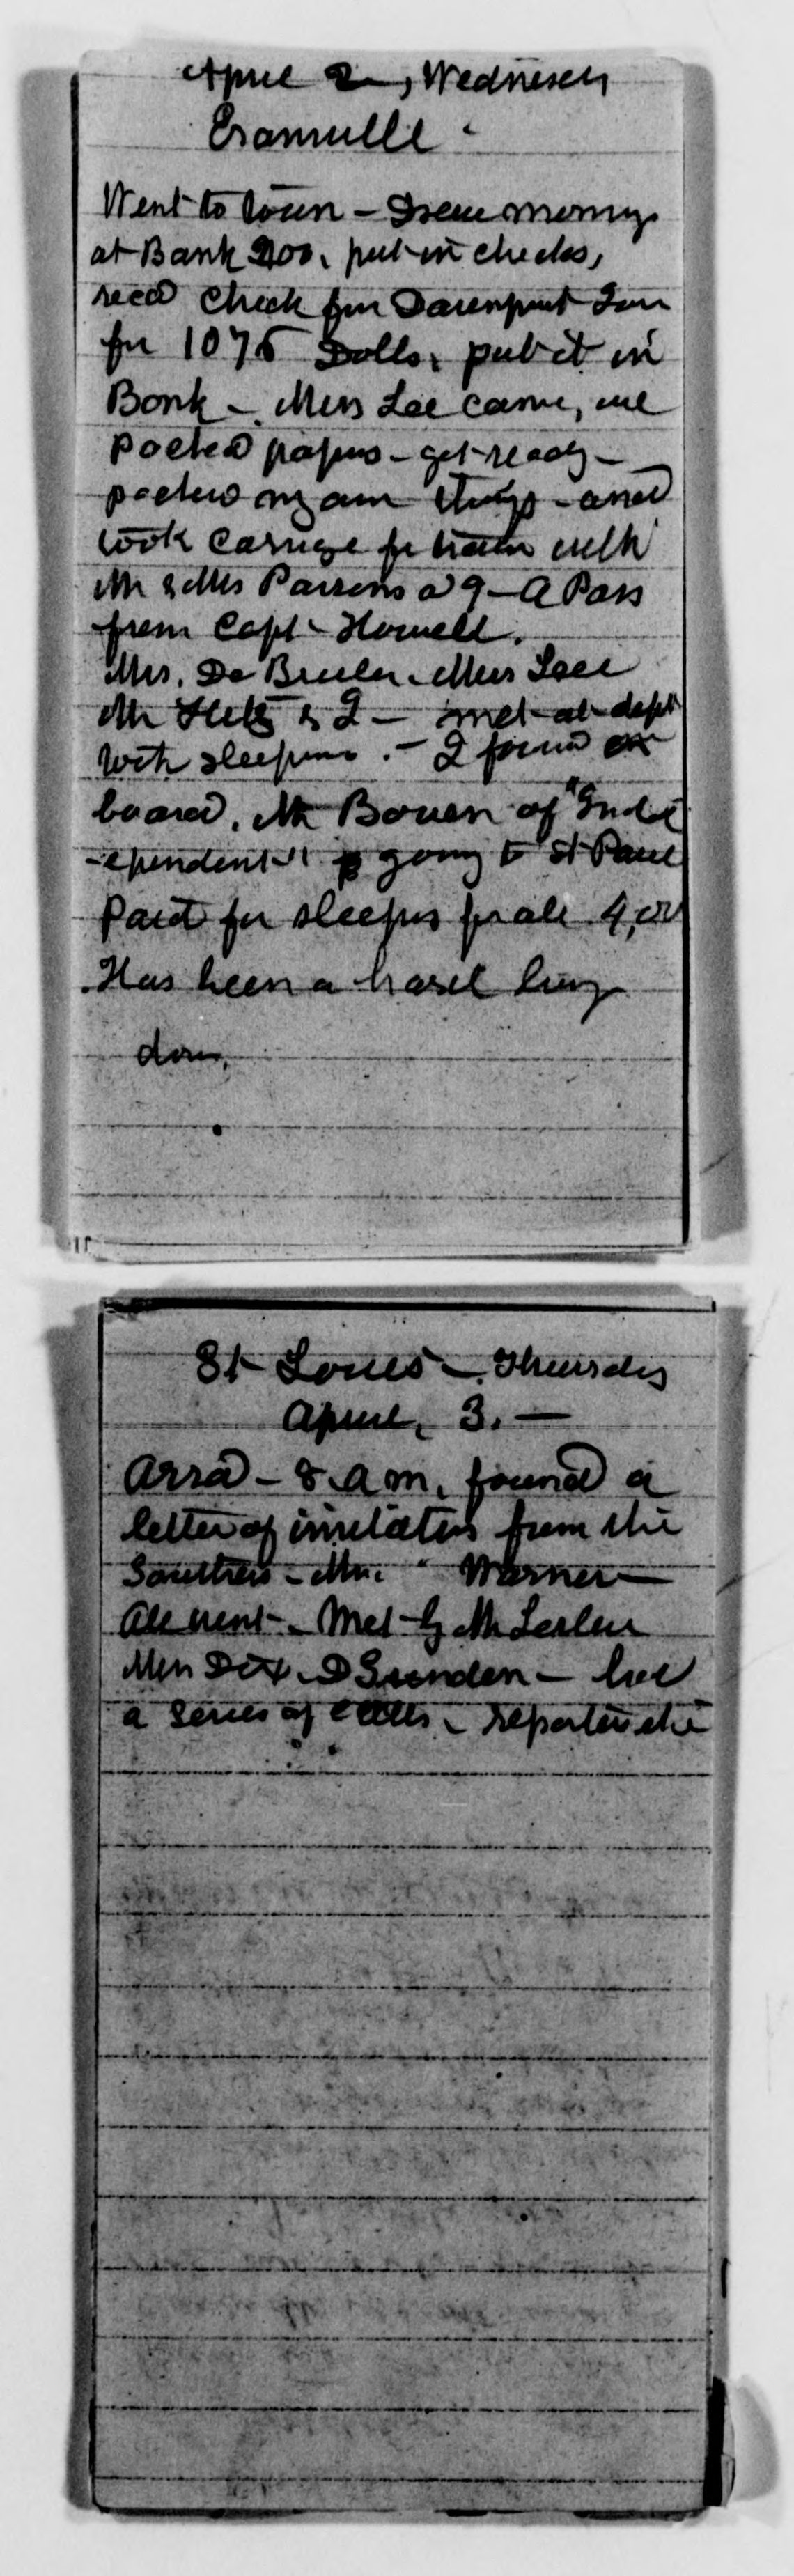 April 2, Wednesdy
Evansville.
Went to town - Drew money
at Bank 200, put in checks,
recd check for Davenport Loan
for 1075 Dolls, put it in
Bank - Miss Lee came, we
packed papers - get ready -
packed my own things - and
took carriage for train with
Mr & Mrs Parsons at 9 - A Pass
from Capt. Howell.
Mrs. De Bruler. Miss Lee
Mr & I - met at depot
with sleepers. - I found on
board, Mr Bowen of "Inde
-ependent" going to St Paul
Paid for sleepers for all 4,00
Has been a hard long
day.
St Louis - Thursday
April, 3. -
Arrd - 8 a m, found a
letter of invitation from the
Southern - Mr. Warner
All went - Met by Mr Leslie
Miss - had
a series of calls - reporters etc